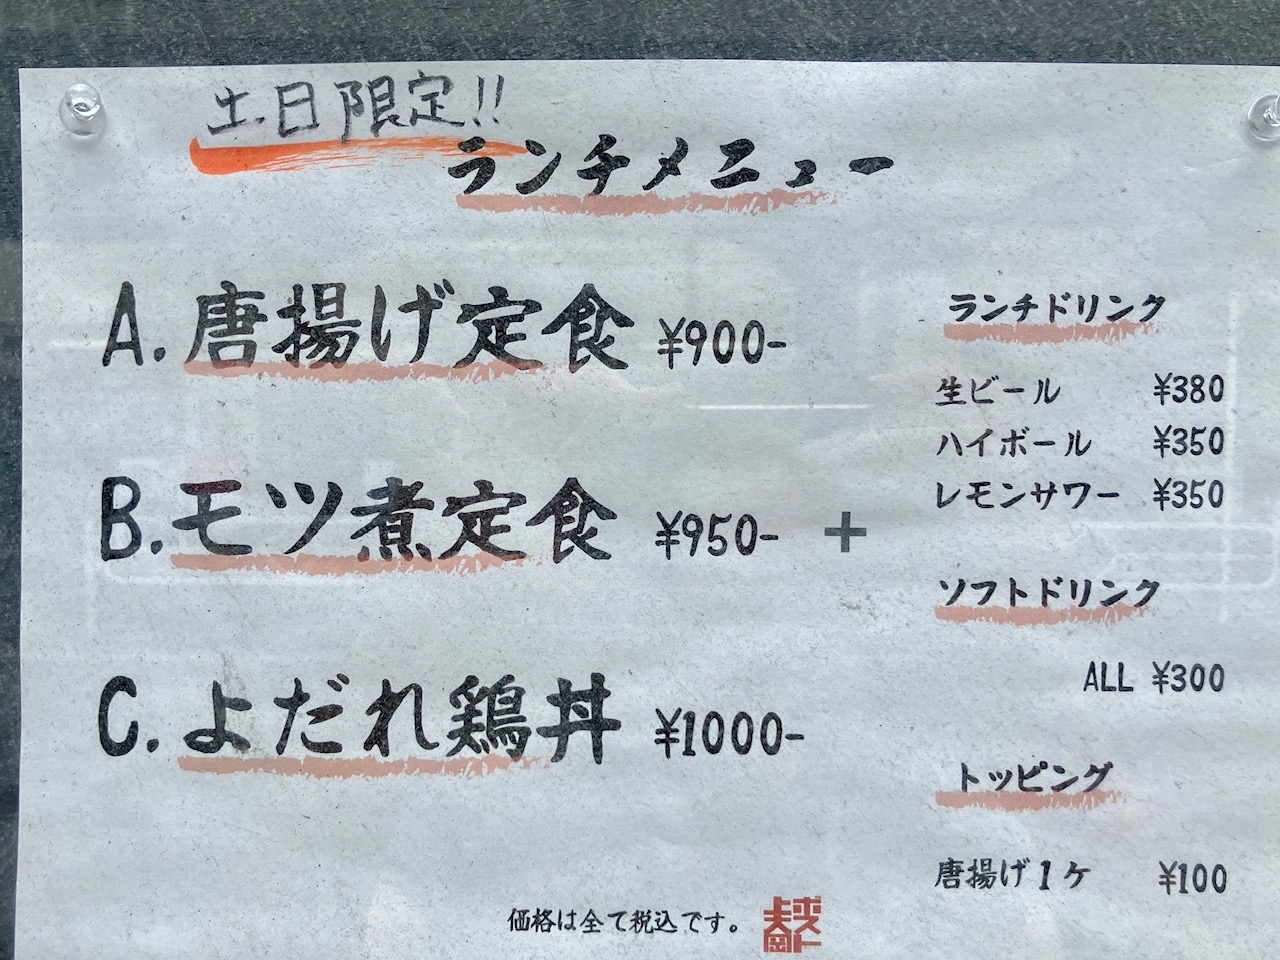 土.日限定!!
ランチメニュー
A.唐揚げ定食 ¥900-
B.モツ煮定食 ¥950-
C.よだれ鶏丼 ¥1000-
+
ランチドリンク
生ビール ¥380
ハイボール ¥350
レモンサワー ¥350
ソフトドリンク
ALL ¥300
トッピング
唐揚げ1ケ ¥100
価格は全て税込です。